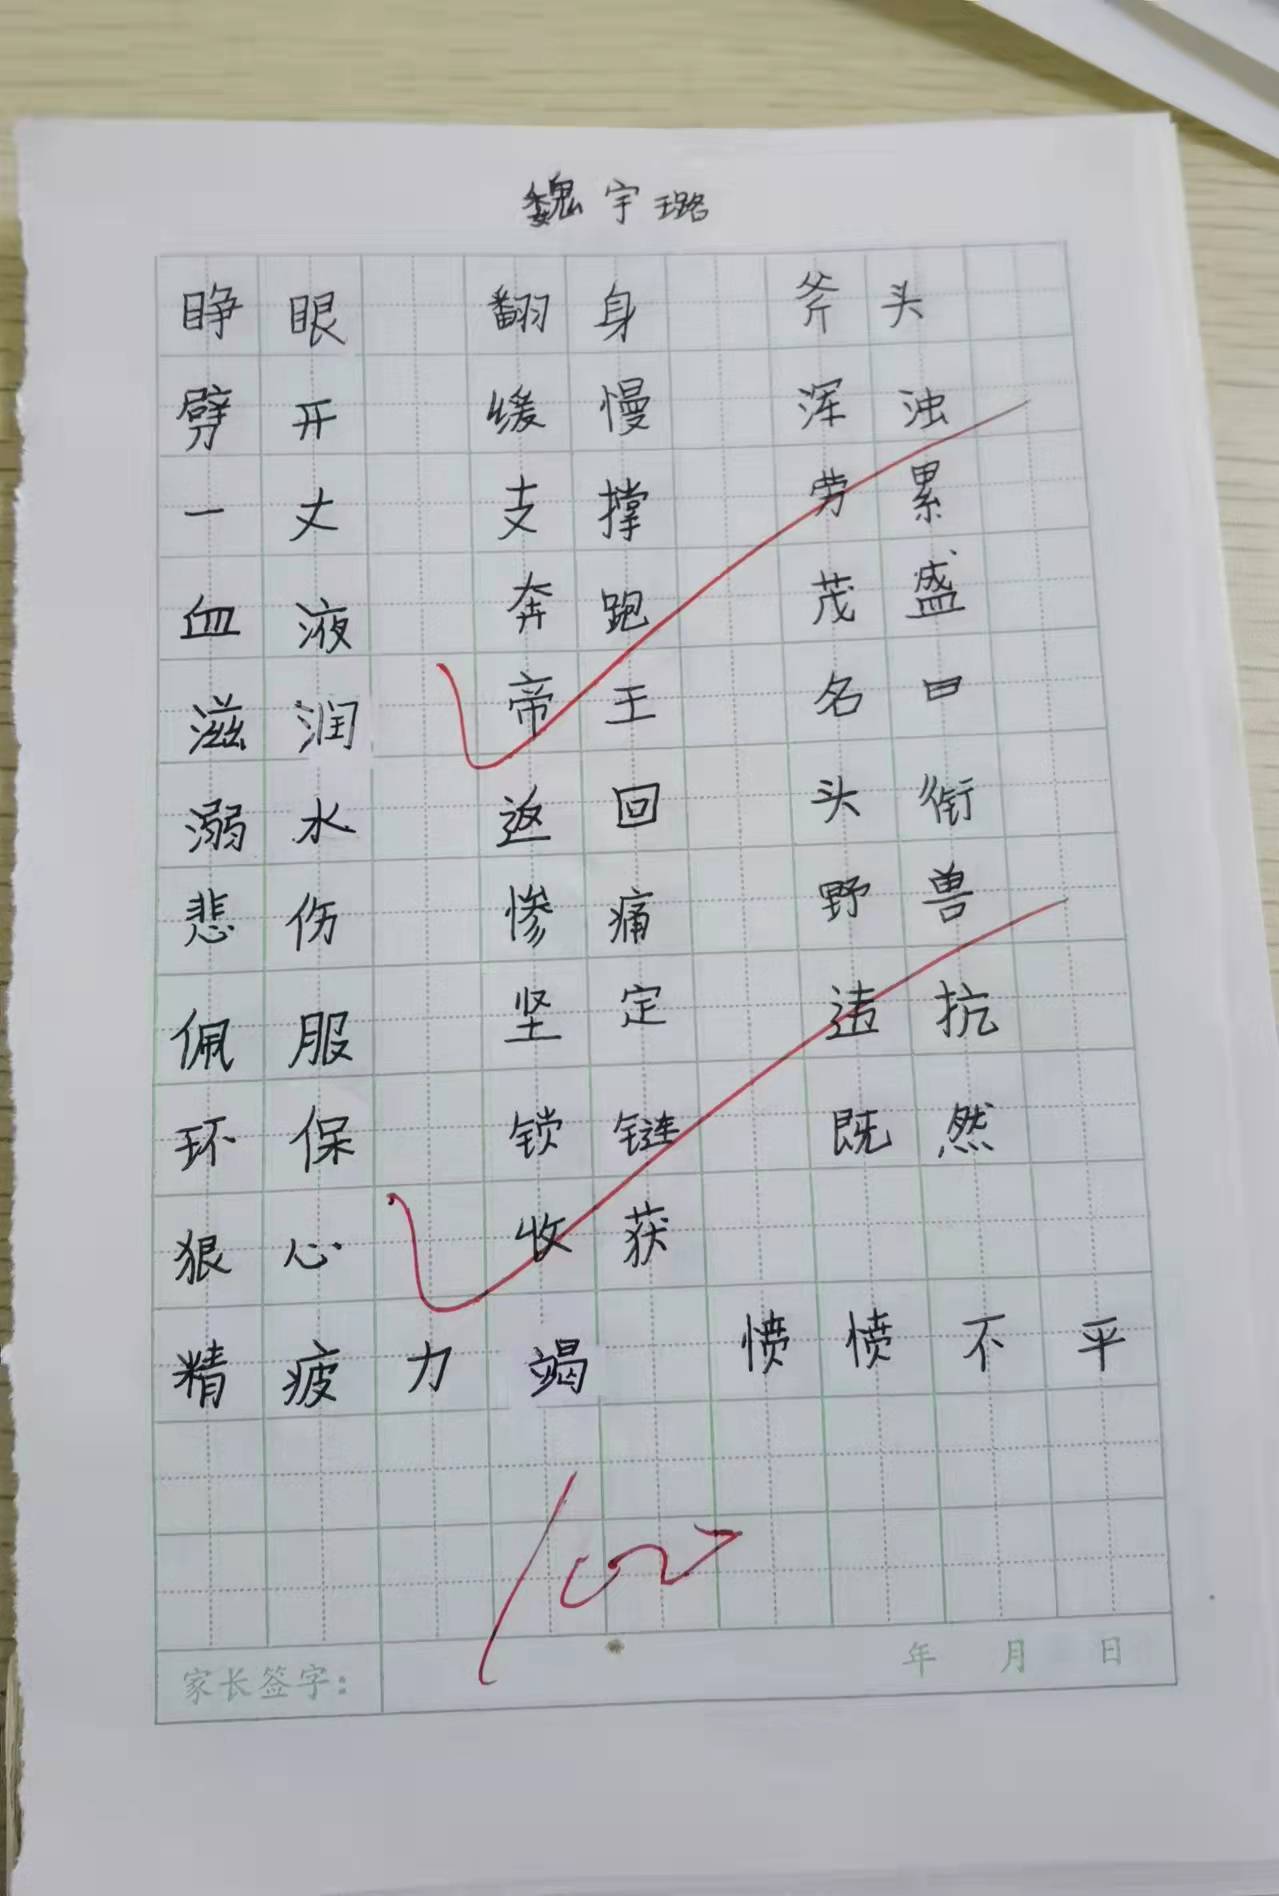 魏宇璐
睁眼 翻身 斧头
劈开 缓慢 浑浊
一丈 支撑 劳累
血液 奔跑 茂盛
滋润 帝王 名曰
溺水 返回 头衔
悲伤 惨痛 野兽
佩服 坚定 违抗
环保 锁链 既然
狠心 收获
精疲力竭 愤愤不平
100
家长签字： 年 月 日